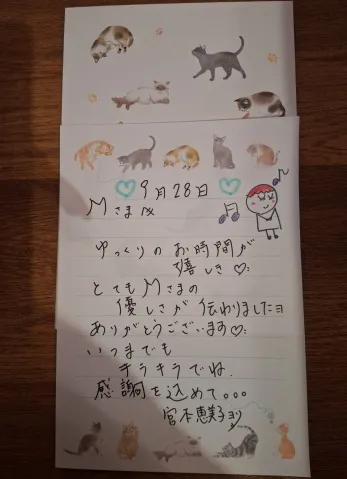 9月28日
Mさま
ゆっくりのお時間が
嬉しき♡
とてもMさまの
優しさが伝わりましたョ
ありがとうございます♡
いつまでも
キラキラでね
感謝を込めて。。。
宮本恵美子ョリ